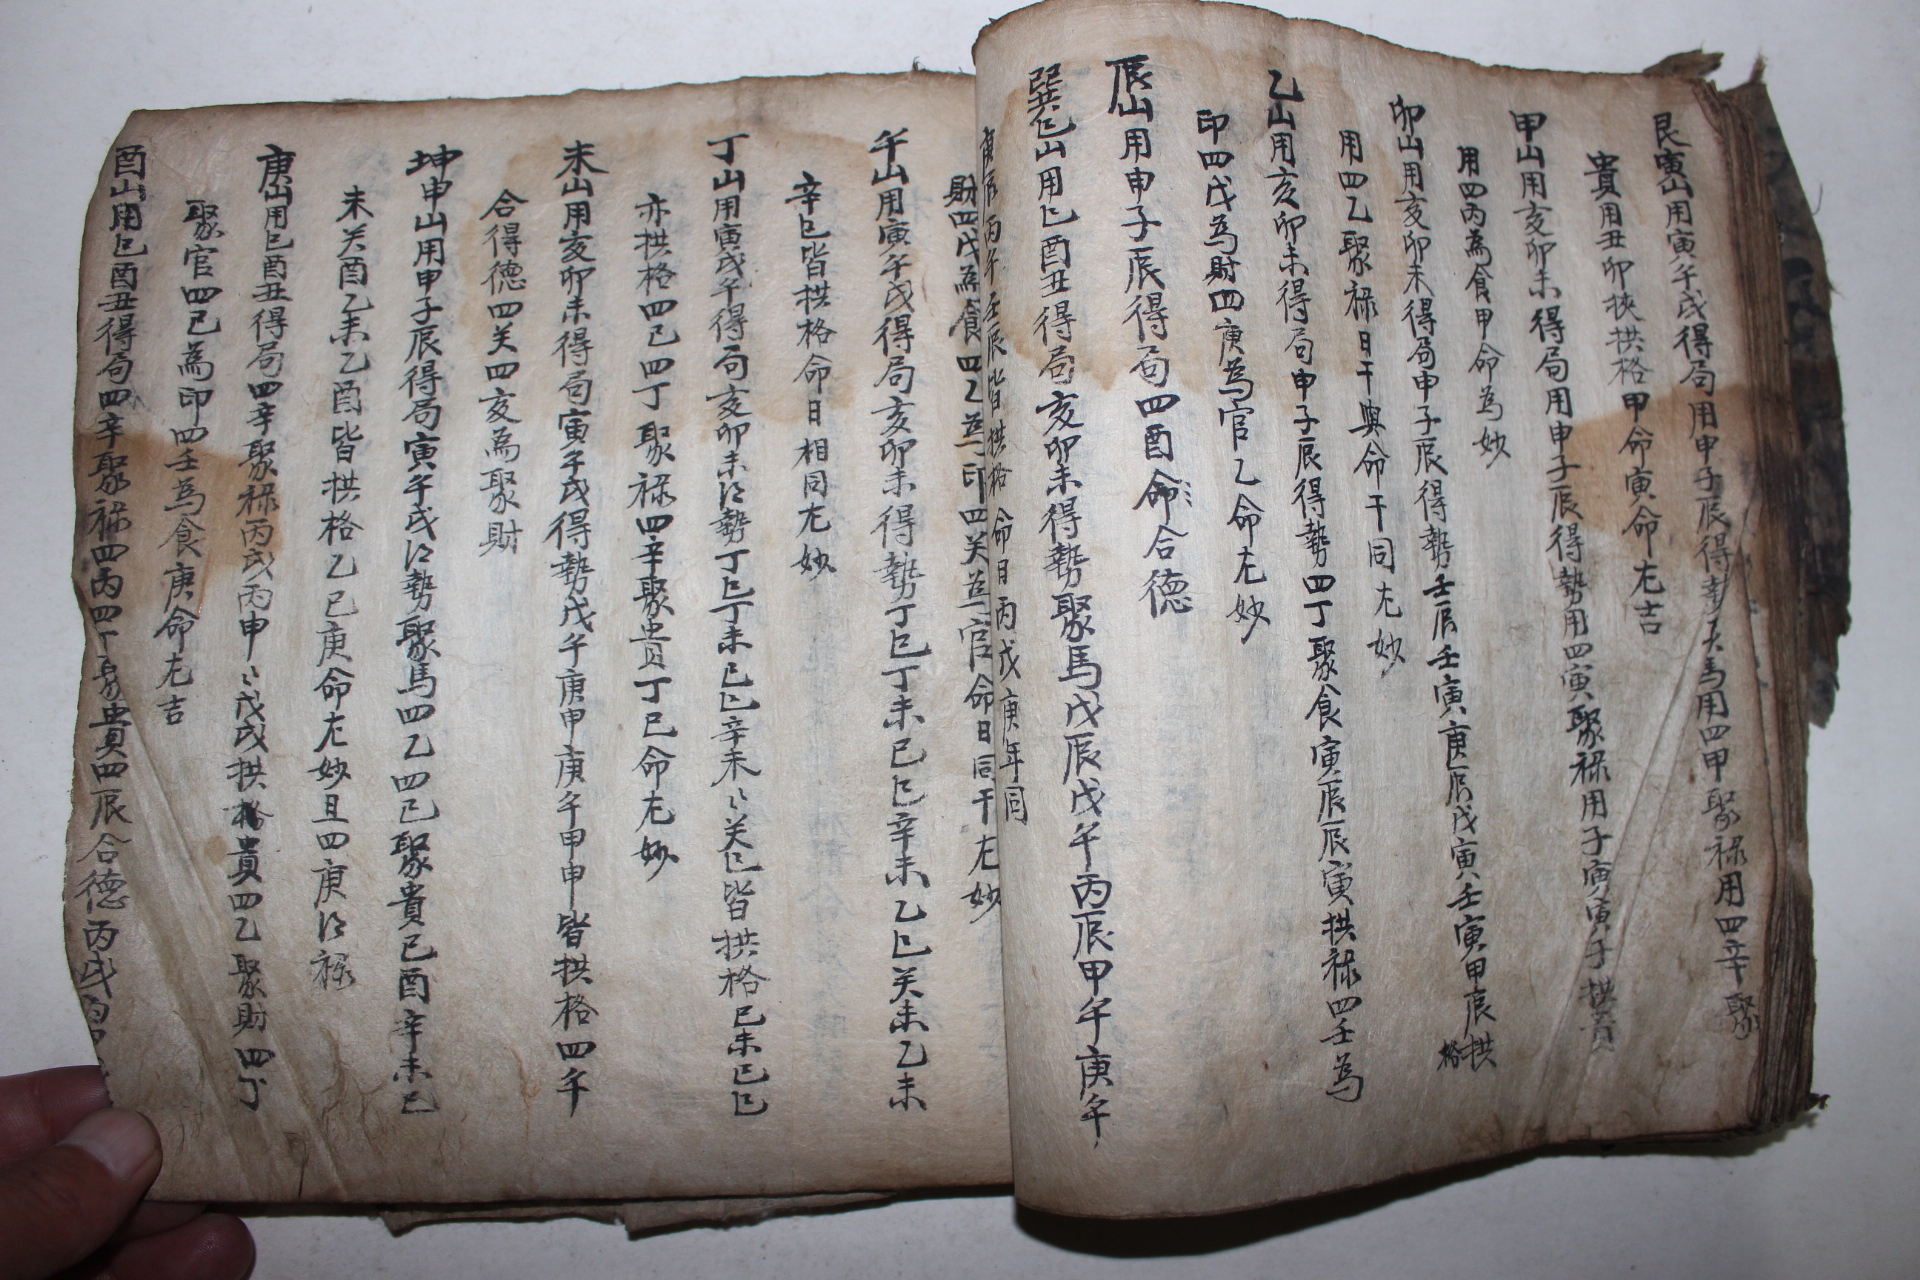 艮寅山用寅午戌得局用申子辰得勢天馬用四甲聚禄用四辛聚
貴用丑卯挾拱格甲命寅命尢吉
甲山用亥卯未得局用申子辰得勢用四寅聚禄用子寅寅子拱貴
用四丙為食甲命為妙
卯山用亥卯未得局申子辰得勢壬辰壬寅庚辰戊寅壬寅甲辰拱格
用四乙聚禄日干與命干同尢妙
乙山用亥卯未得局申子辰得勢四丁聚食寅辰辰寅拱禄四壬為
印四戊為財四庚為官乙命尢妙
辰山用申子辰得局四酉命合德
巽巳山用巳酉丑得局亥卯未得勢聚馬戊辰戊午丙辰甲午庚午
庚辰丙午壬辰皆拱格命日丙戊庚年同
財四戊為食四乙為印四癸為官命日同干尢妙
午山用寅午戌得局亥卯未得勢丁巳丁未己巳辛未乙巳癸未乙未
辛巳皆拱格命日相同尢妙
丁山用寅戌午得局亥卯未得勢丁巳丁未己巳辛未〻癸巳皆拱格己未己巳
亦拱格四己四丁聚禄四辛聚貴丁巳命尢妙
未山用亥卯未得局寅午戌得勢戊午庚申庚午甲申皆拱格四午
合得德四癸四亥為聚財
坤申山用申子辰得局寅午戌得勢聚馬四乙四己聚貴己酉辛未己
未癸酉乙未乙酉皆拱格乙巳庚命尢妙且四庚得禄
庚山用巳酉丑得局四辛聚禄丙戌丙申〻戊戌拱格貴四乙聚財四丁
聚官四己為印四壬為食庚命尢吉
酉山用巳酉丑得局四辛聚禄四丙四丁聚貴四辰合德丙戌丙